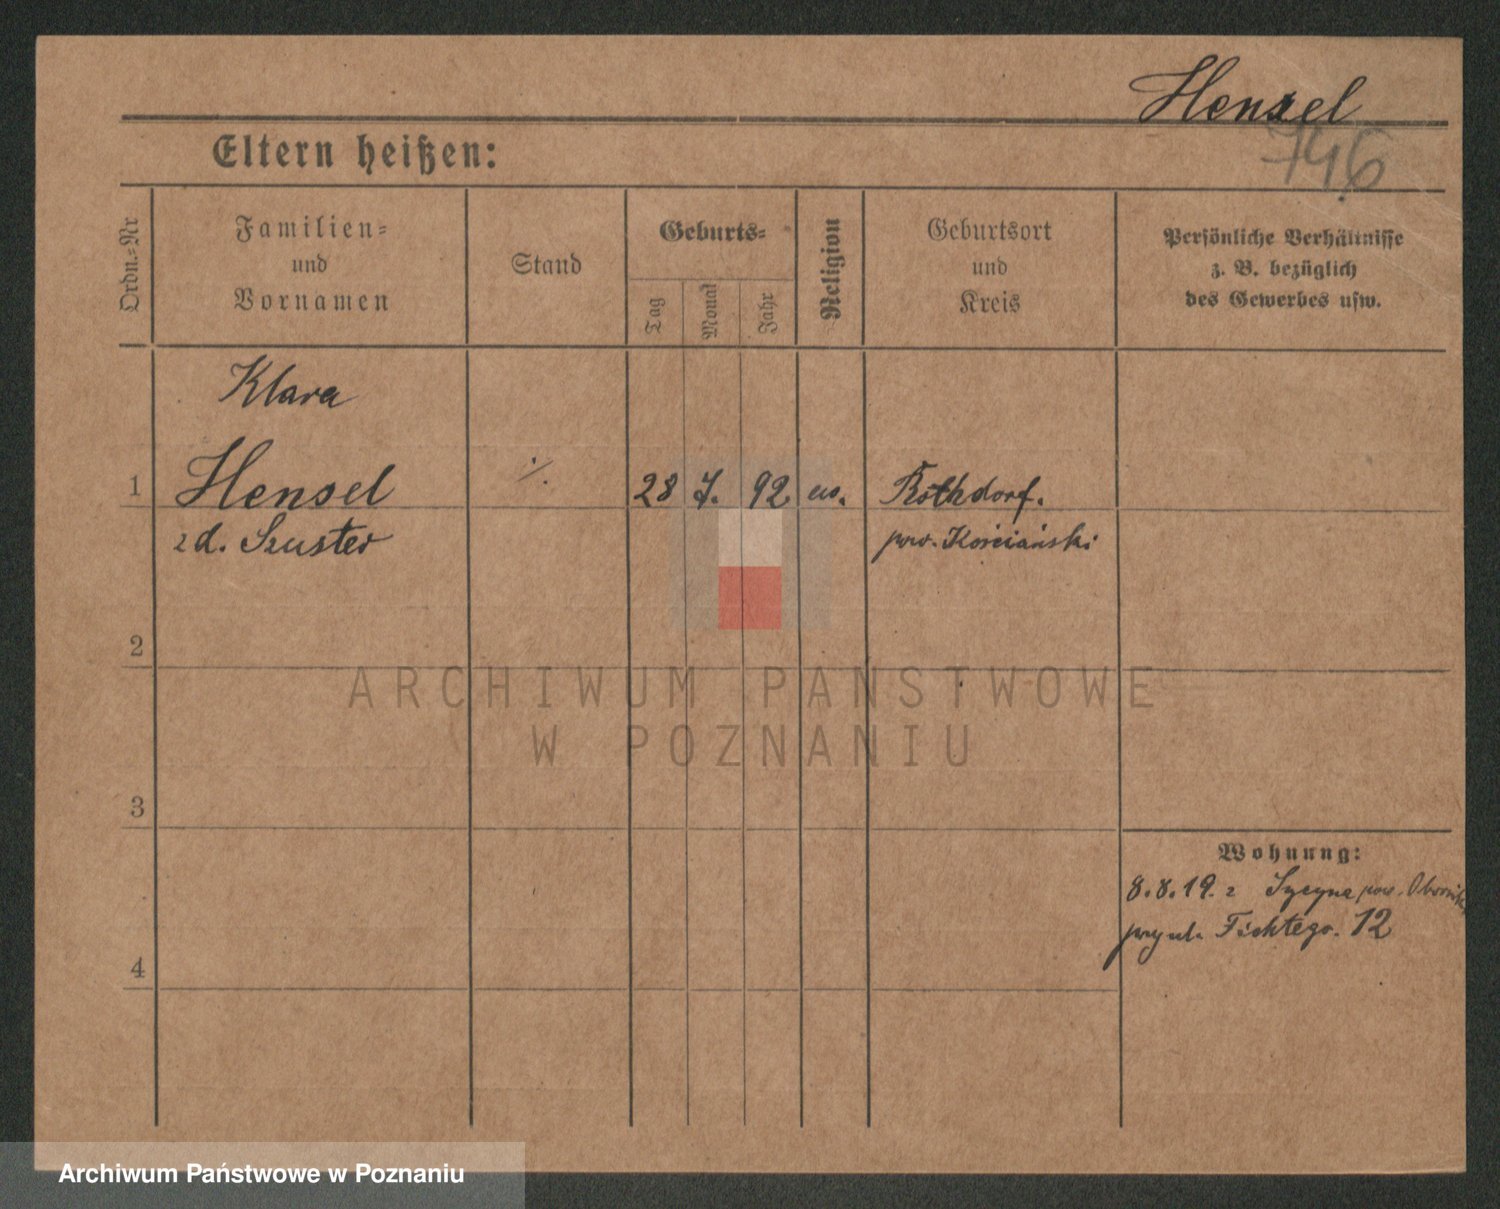 Hensel
746
Eltern heißen:
Ordn.=Nr
Familien=
und
Vornamen
Stand
Geburts=
Tag
Monat
Jahr
Religion
Geburtsort
und
Kreis
Persönliche Verhältnisse
z. B. bezüglich
des Gewerbes usw.
Klara
1 Hensel ·/. 28 7. 92 ew. Rothdorf.
z d. Szuster pow. Kościański
2
ARCHIWUM PAŃSTWOWE
W POZNANIU
3
Wohnung:
8.8.19. z pow.
przy ul. Fichtego. 12
4
Archiwum Państwowe w Poznaniu